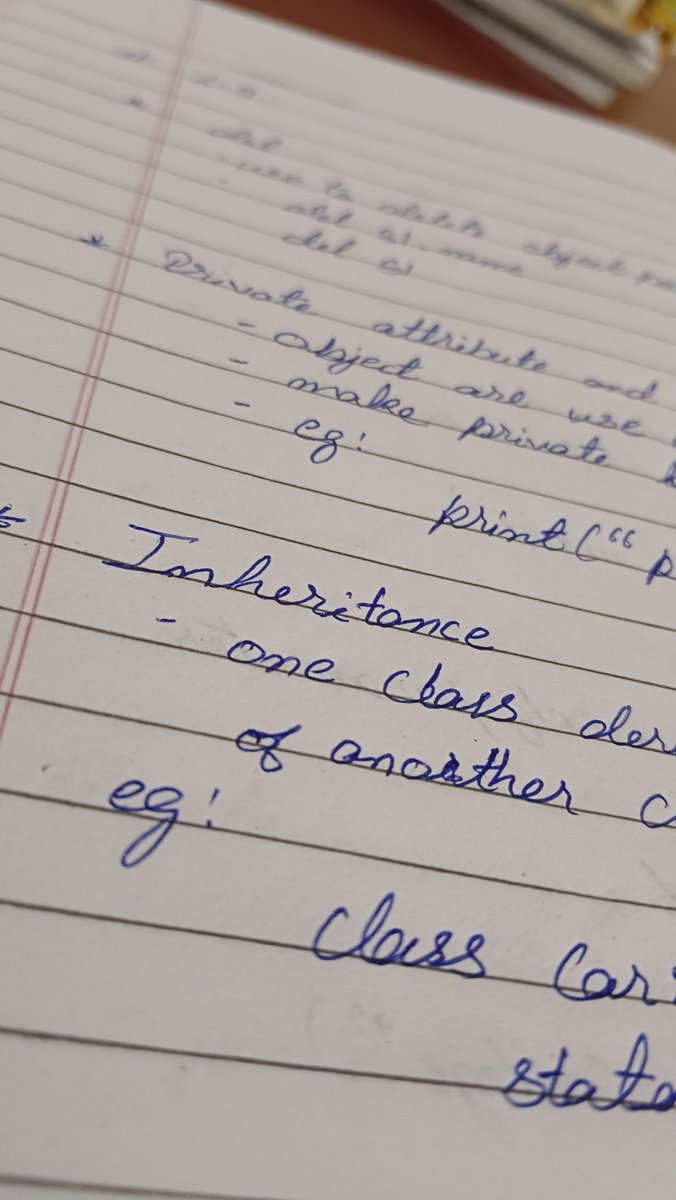 * del
- use to delete object
del s1.name
del s1
* Private attribute and
- object are use
- make private
- eg:
print("p
* Inheritance
- one class der
of anorther c
eg:
class Car:
stat